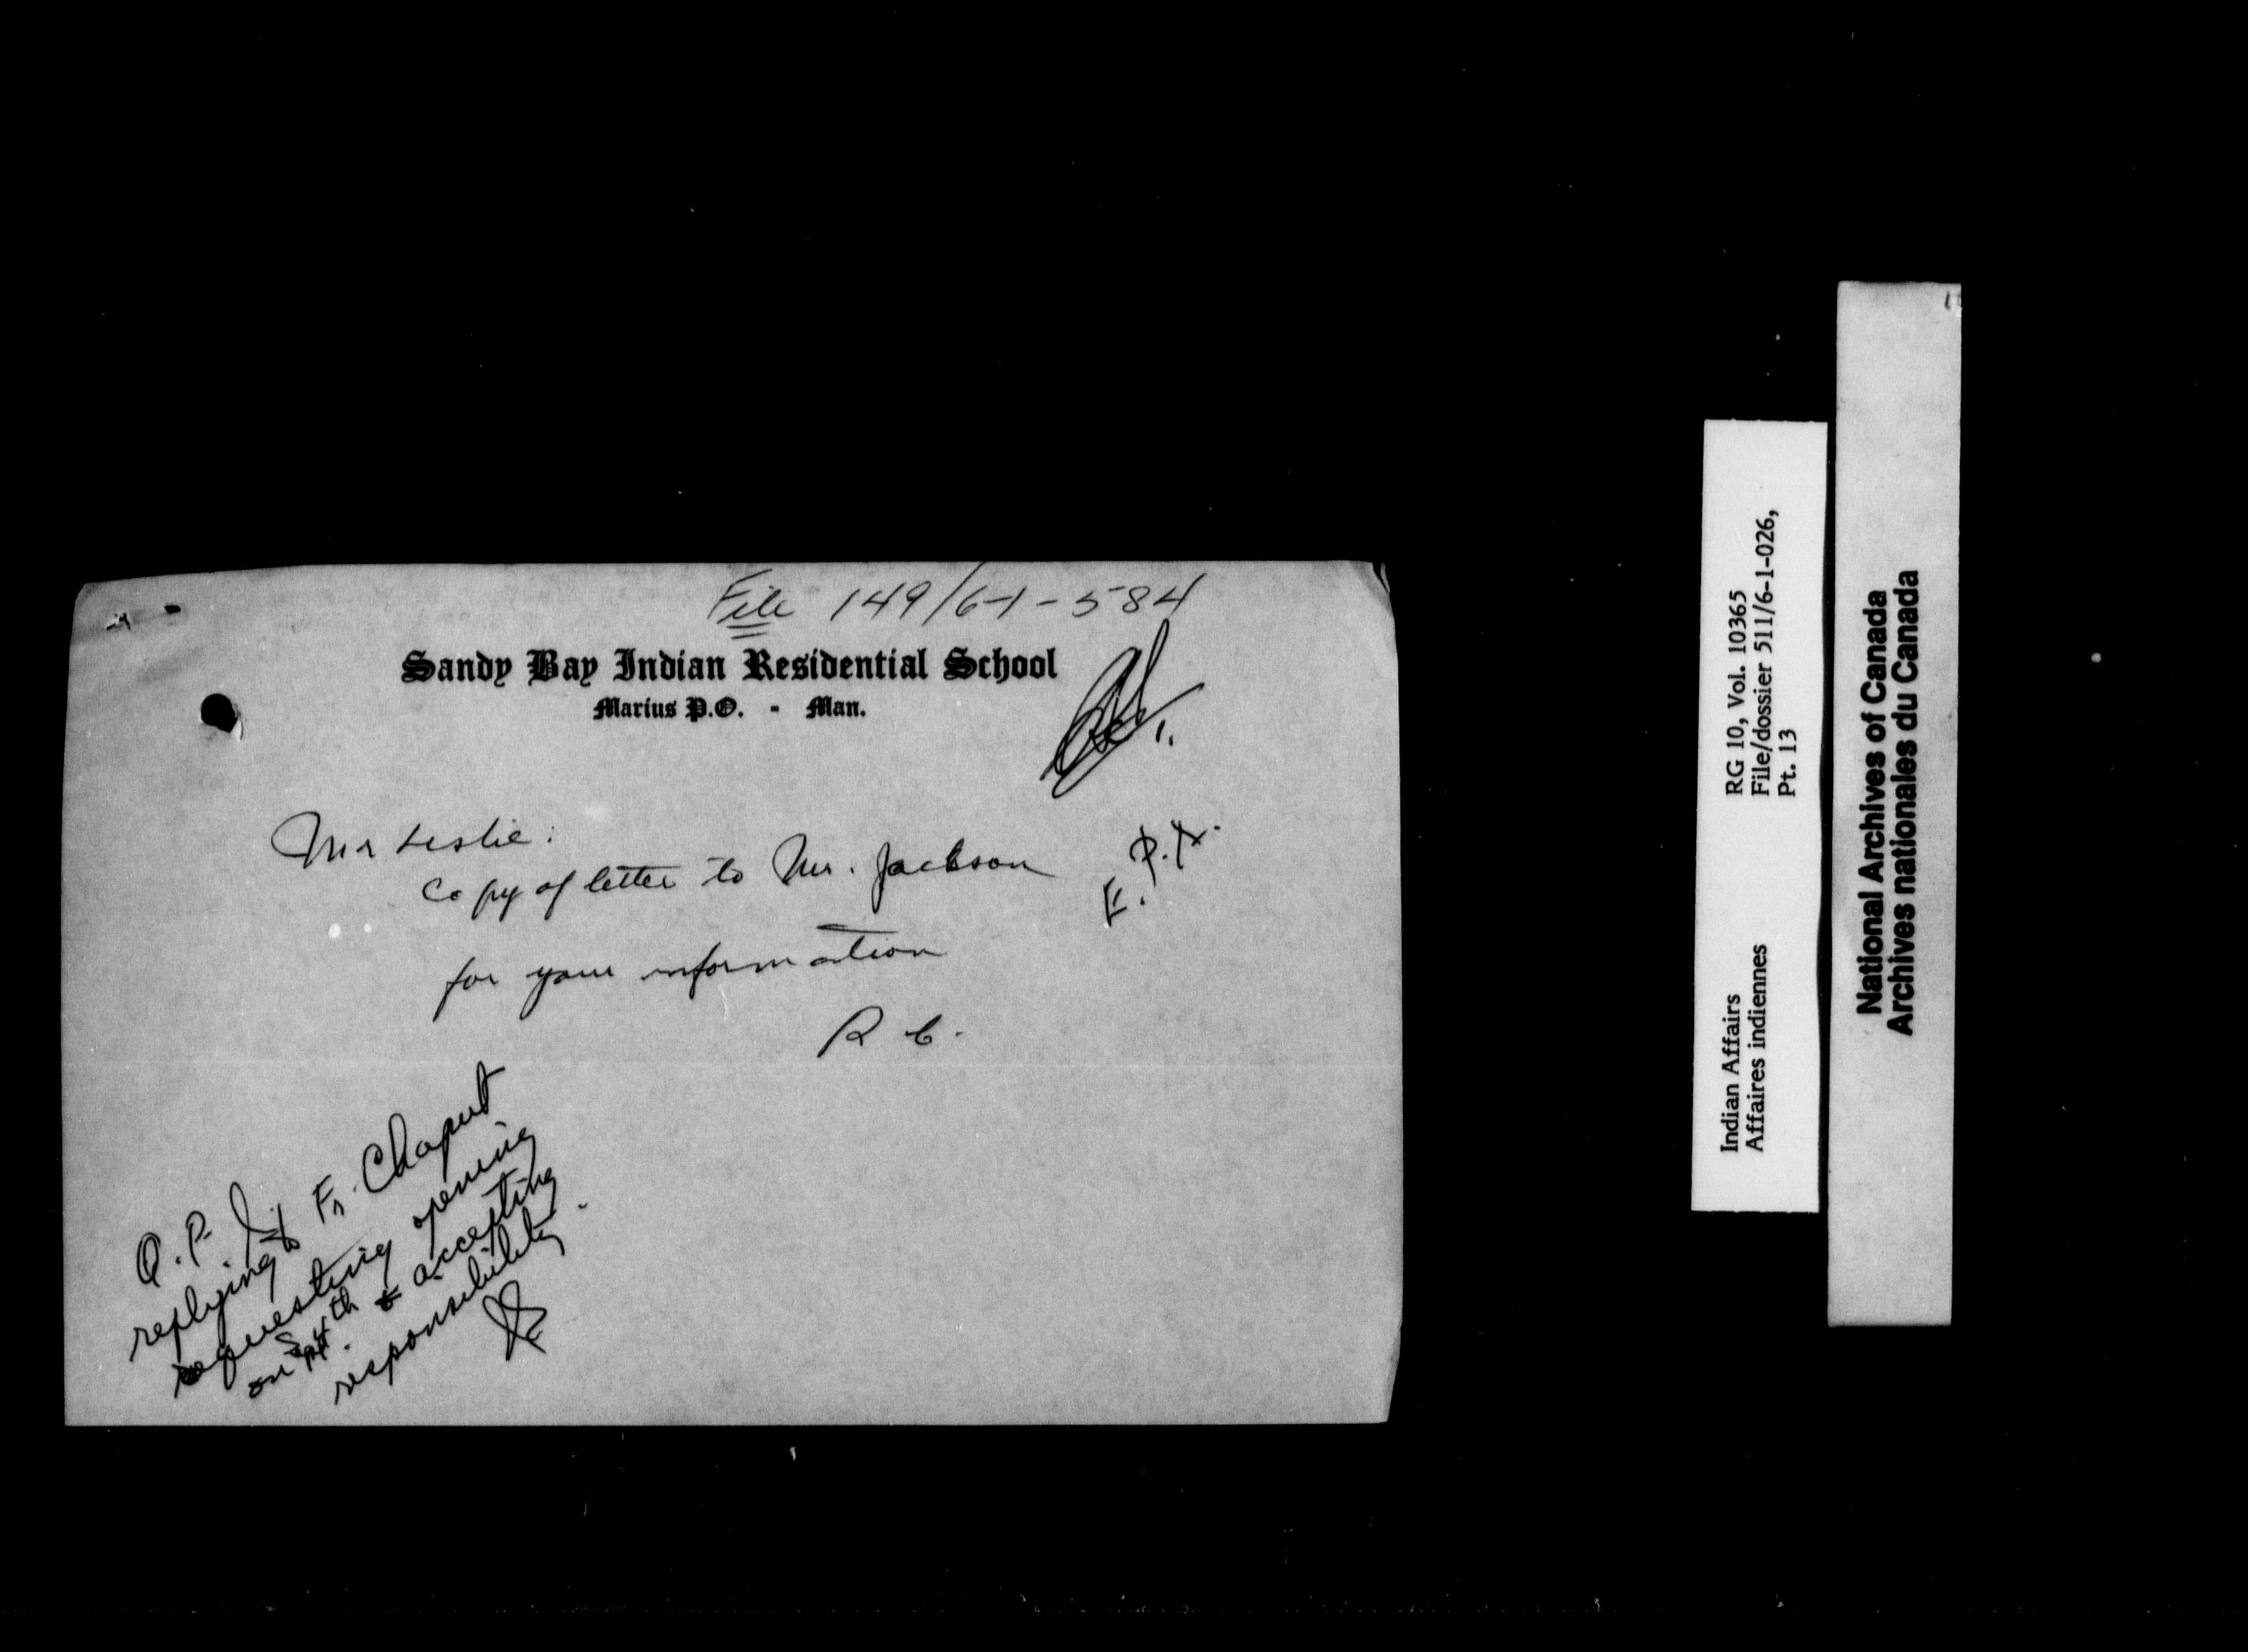 File 149/6-1-584
Sandy Bay Indian Residential School
Marius P.O. - Man.
Mr Leslie:
Copy of letter to Mr. Jackson
for your information
R C.
replying to Fr. Chaput
requesting opening
on Sept 4th & accepting
responsibility.
Indian Affairs RG 10, Vol. 10365
Affaires indiennes File/dossier 511/6-1-026,
Pt. 13
National Archives of Canada
Archives nationales du Canada